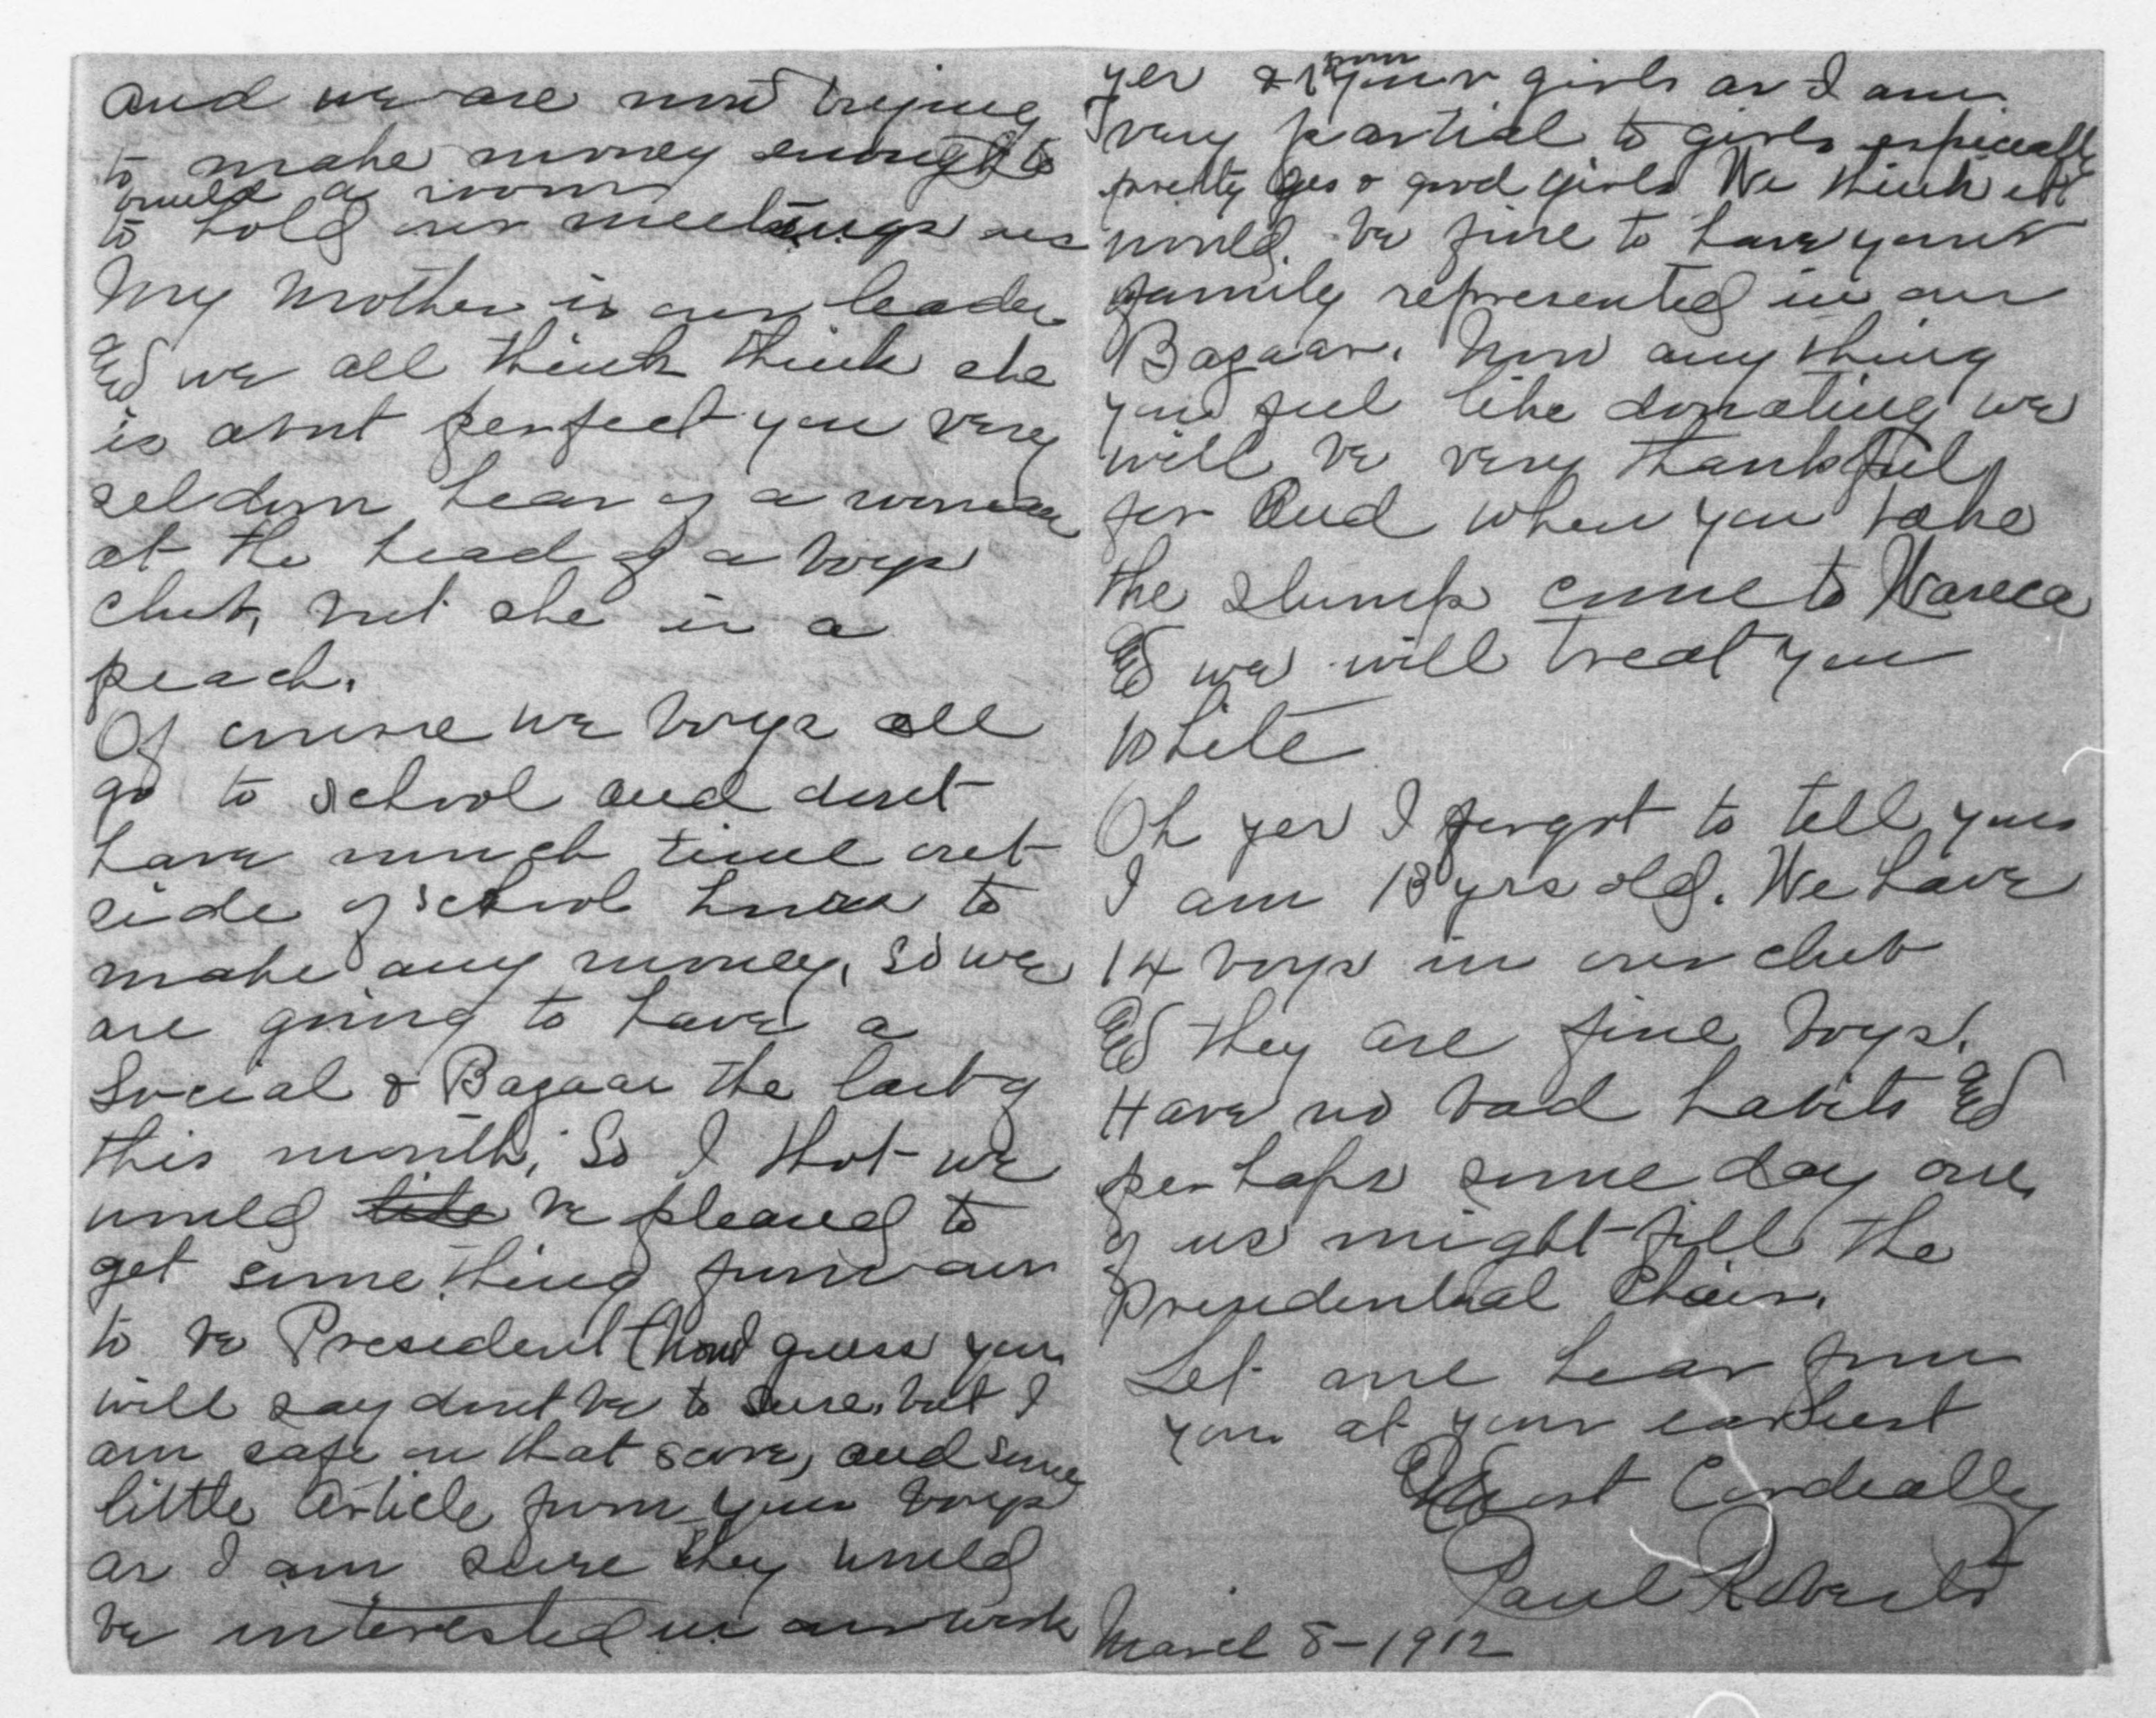 and we are now trying
to make money enough to
build a room
to hold our meetings in
My Mother is our leader
and we all think think she
is about perfect you very
seldom hear of a woman
at the head of a boys
club, but she is a
peach.
Of course we boys all
go to school and dont
have much time out
side of school hours to
make any money, so we
are going to have a
Social & Bazaar the last of
this month, So I thot we
would like be pleased to
get some thing from our
to be President (now guess you
will say dont be to sure, but I
am safe on that score, and some
little Article from your boys
as I am sure they would
be interested in our work
yes & from your girls as I am
very partial to girls especially
pretty yes & good girls We think it
would be fine to have your
family represented in our
Bazaar. Now any thing
you feel like donating we
will be very thankful
for And when you take
the stump come to Waseca
and we will treat you
White
Oh yes I forgot to tell you
I am 13 yrs old. We have
14 boys in our club
and they are fine boys.
Have no bad habits and
perhaps some day one
of us might fill the
Presidential Chair.
Let me hear from
you at your earliest
Most Cordially
Paul Roberts
March 8-1912